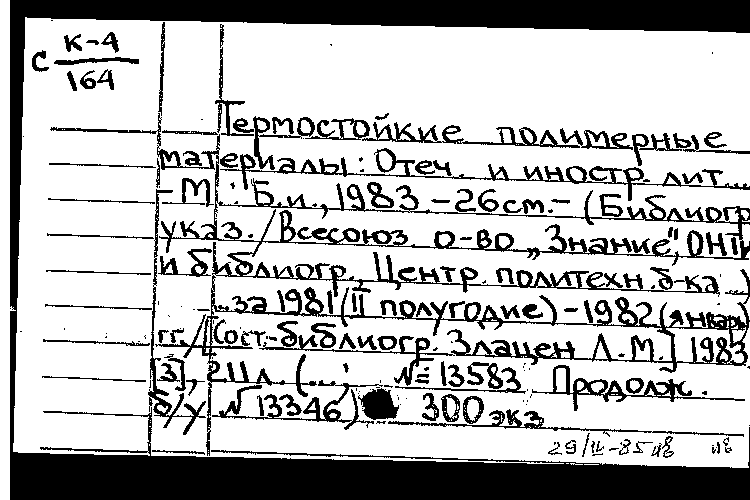 С К-4
164
Термостойкие полимерные
материалы: Отеч. и иностр. лит...
- М.: Б.и., 1983. - 26см. - (Библиогр
указ. / Всесоюз. о-во „Знание", ОНТИ
и библиогр., Центр. политехн. б-ка ...)
...за 1981 (II полугодие) - 1982 (январь)
гг. / [Сост.-библиогр. Злацен Л.М.] 1983.
[3], 211 л. (...; № 13583 Продолж.
б/у № 13346) 300 экз
29/III-85